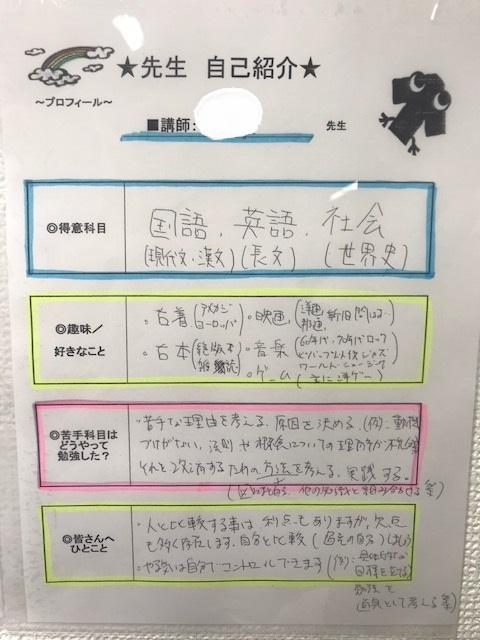 ★先生 自己紹介★
～プロフィール～
■講師: 先生
◎得意科目
国語、英語、社会
(現代文・漢文)(長文)(世界史)
◎趣味／
好きなこと
・古着(アメカジ
ヨーロッパ)
・古本(絶版本
雑誌)
・映画(洋画
邦画、新旧問わず)
・音楽(60年代、70年代ロック
ジャズ
ワールドミュージック)
・ゲーム(主に洋ゲー)
◎苦手科目は
どうやって
勉強した?
・苦手な理由を考える。原因を決める。(例:動機
づけがない、法則や根本についての理解が不完全
それを2次消するための方法を考える。実践する。
他の知識と組み合わせる等)
◎皆さんへ
ひとこと
・人と比較する事は利点もありますが、欠点
も多く存在します。自分と比較(過去の自分)しましょう
・やる気は自分でコントロールできます(例:
目標を立てる
勉強を
道具として考える等)